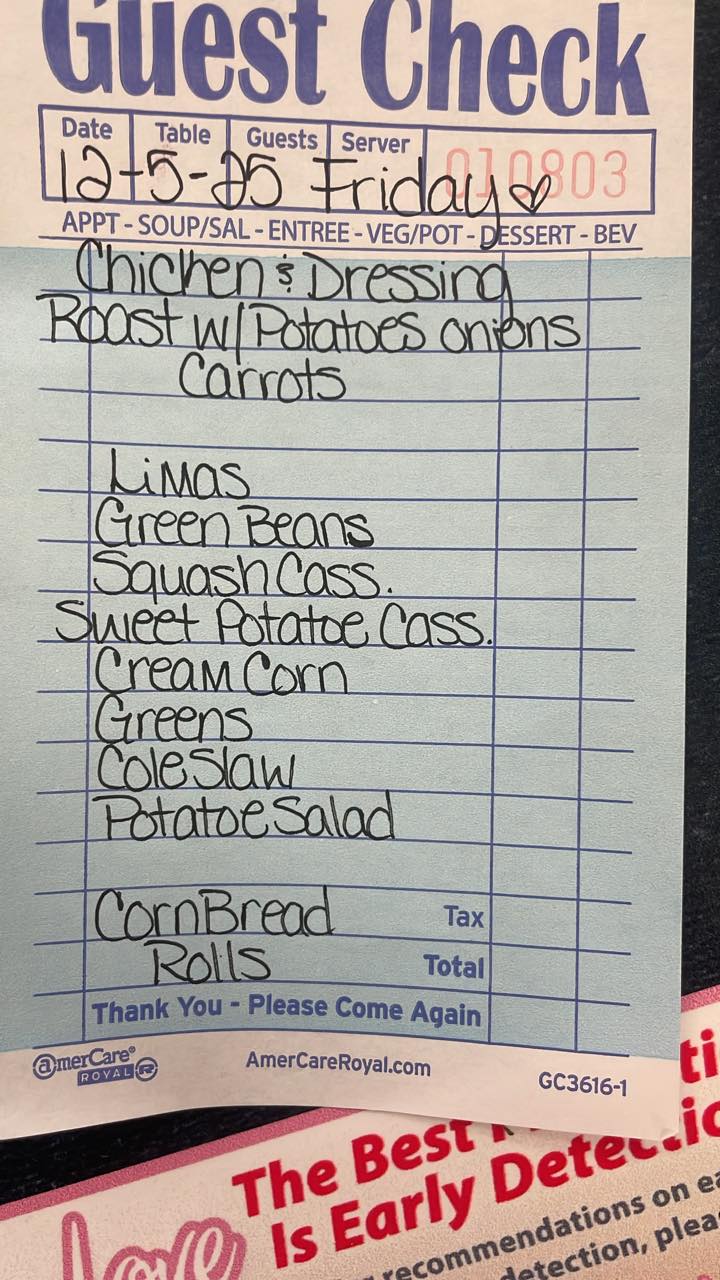 Guest Check
Date Table Guests Server
010803
12-5-25 Friday ♡
APPT - SOUP/SAL - ENTREE - VEG/POT - DESSERT - BEV
Chicken & Dressing
Roast w/ Potatoes onions
Carrots
Limas
Green Beans
Squash Cass.
Sweet Potatoe Cass.
Cream Corn
Greens
Cole Slaw
Potatoe Salad
Corn Bread Tax
Rolls Total
Thank You - Please Come Again
@merCare® ROYAL R
AmerCareRoyal.com
GC3616-1
The Best
Is Early Detectio
Love
recommendations on ea
detection, plea